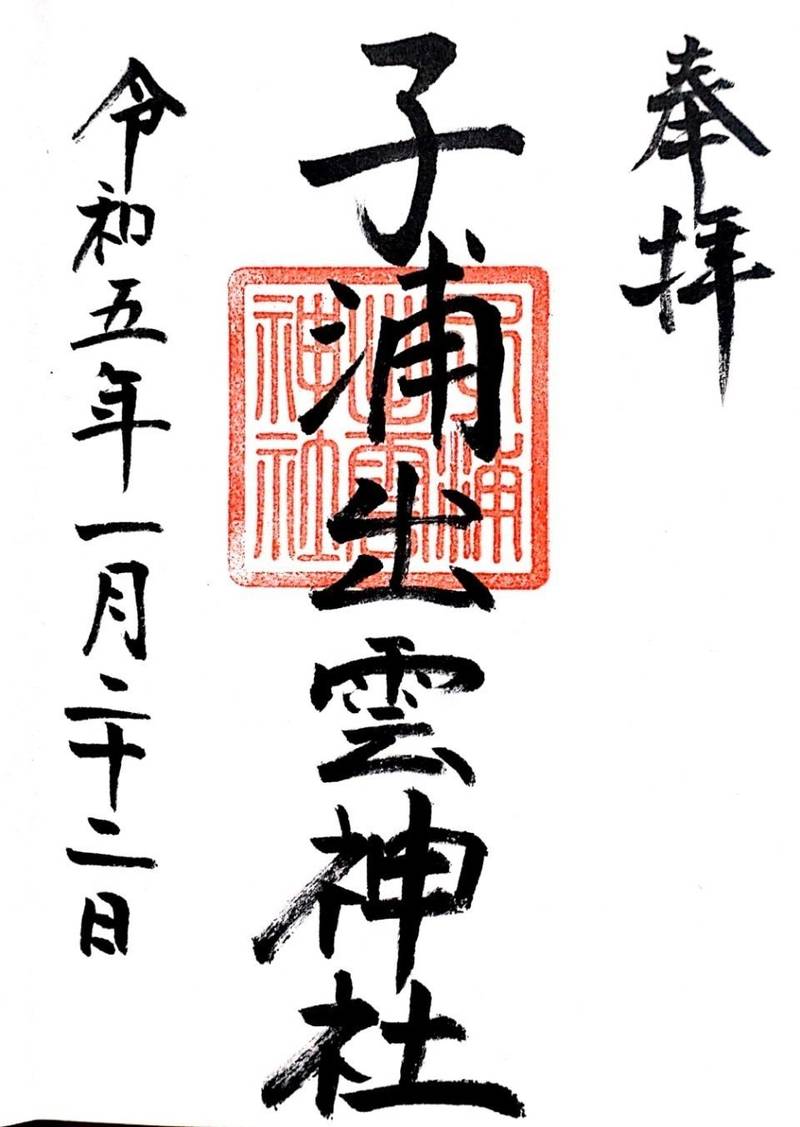 奉拝
子浦出雲神社
子浦
出雲
神社
令和五年一月二十二日